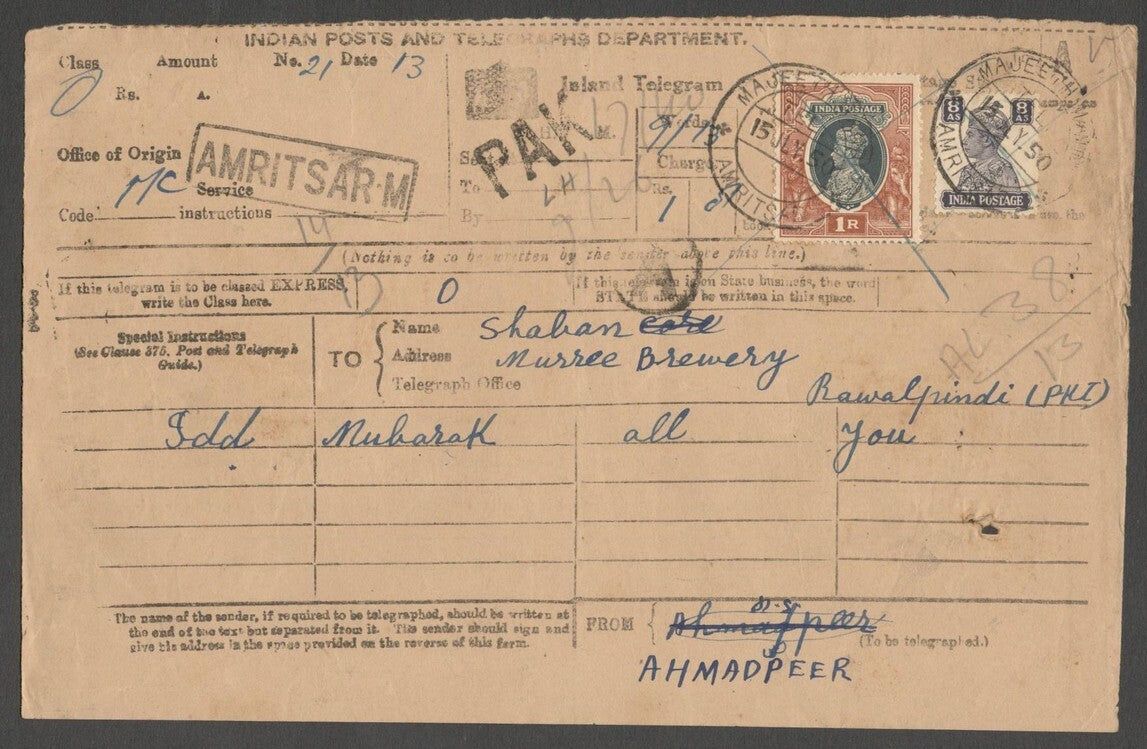 INDIAN POSTS AND TELEGRAPHS DEPARTMENT.
Class Amount No. 21 Date 13
O Rs. A.
Inland Telegram
PAK
Office of Origin
AMRITSAR·M
Service
Code instructions
Words
Charge
To Rs.
By
MAJEETH
AMRITSA
INDIA POSTAGE
1 R
MAJEETH
8 AS 8 AS
INDIA POSTAGE
(Nothing is to be written by the sender above this line.)
If this telegram is to be classed EXPRESS,
write the Class here.
O
If this telegram is on State business, the word
STATE should be written in this space.
AL. 38
13
Special Instructions
(See Clause 375, Post and Telegraph
Guide.)
TO
Name Shaban
Address Murree Brewery
Telegraph Office Rawalpindi (PKT)
Idd Mubarak all you
The name of the sender, if required to be telegraphed, should be written at
the end of the text but separated from it. The sender should sign and
give his address in the space provided on the reverse of this form.
FROM Ahmadpeer
(To be telegraphed.)
AHMADPEER